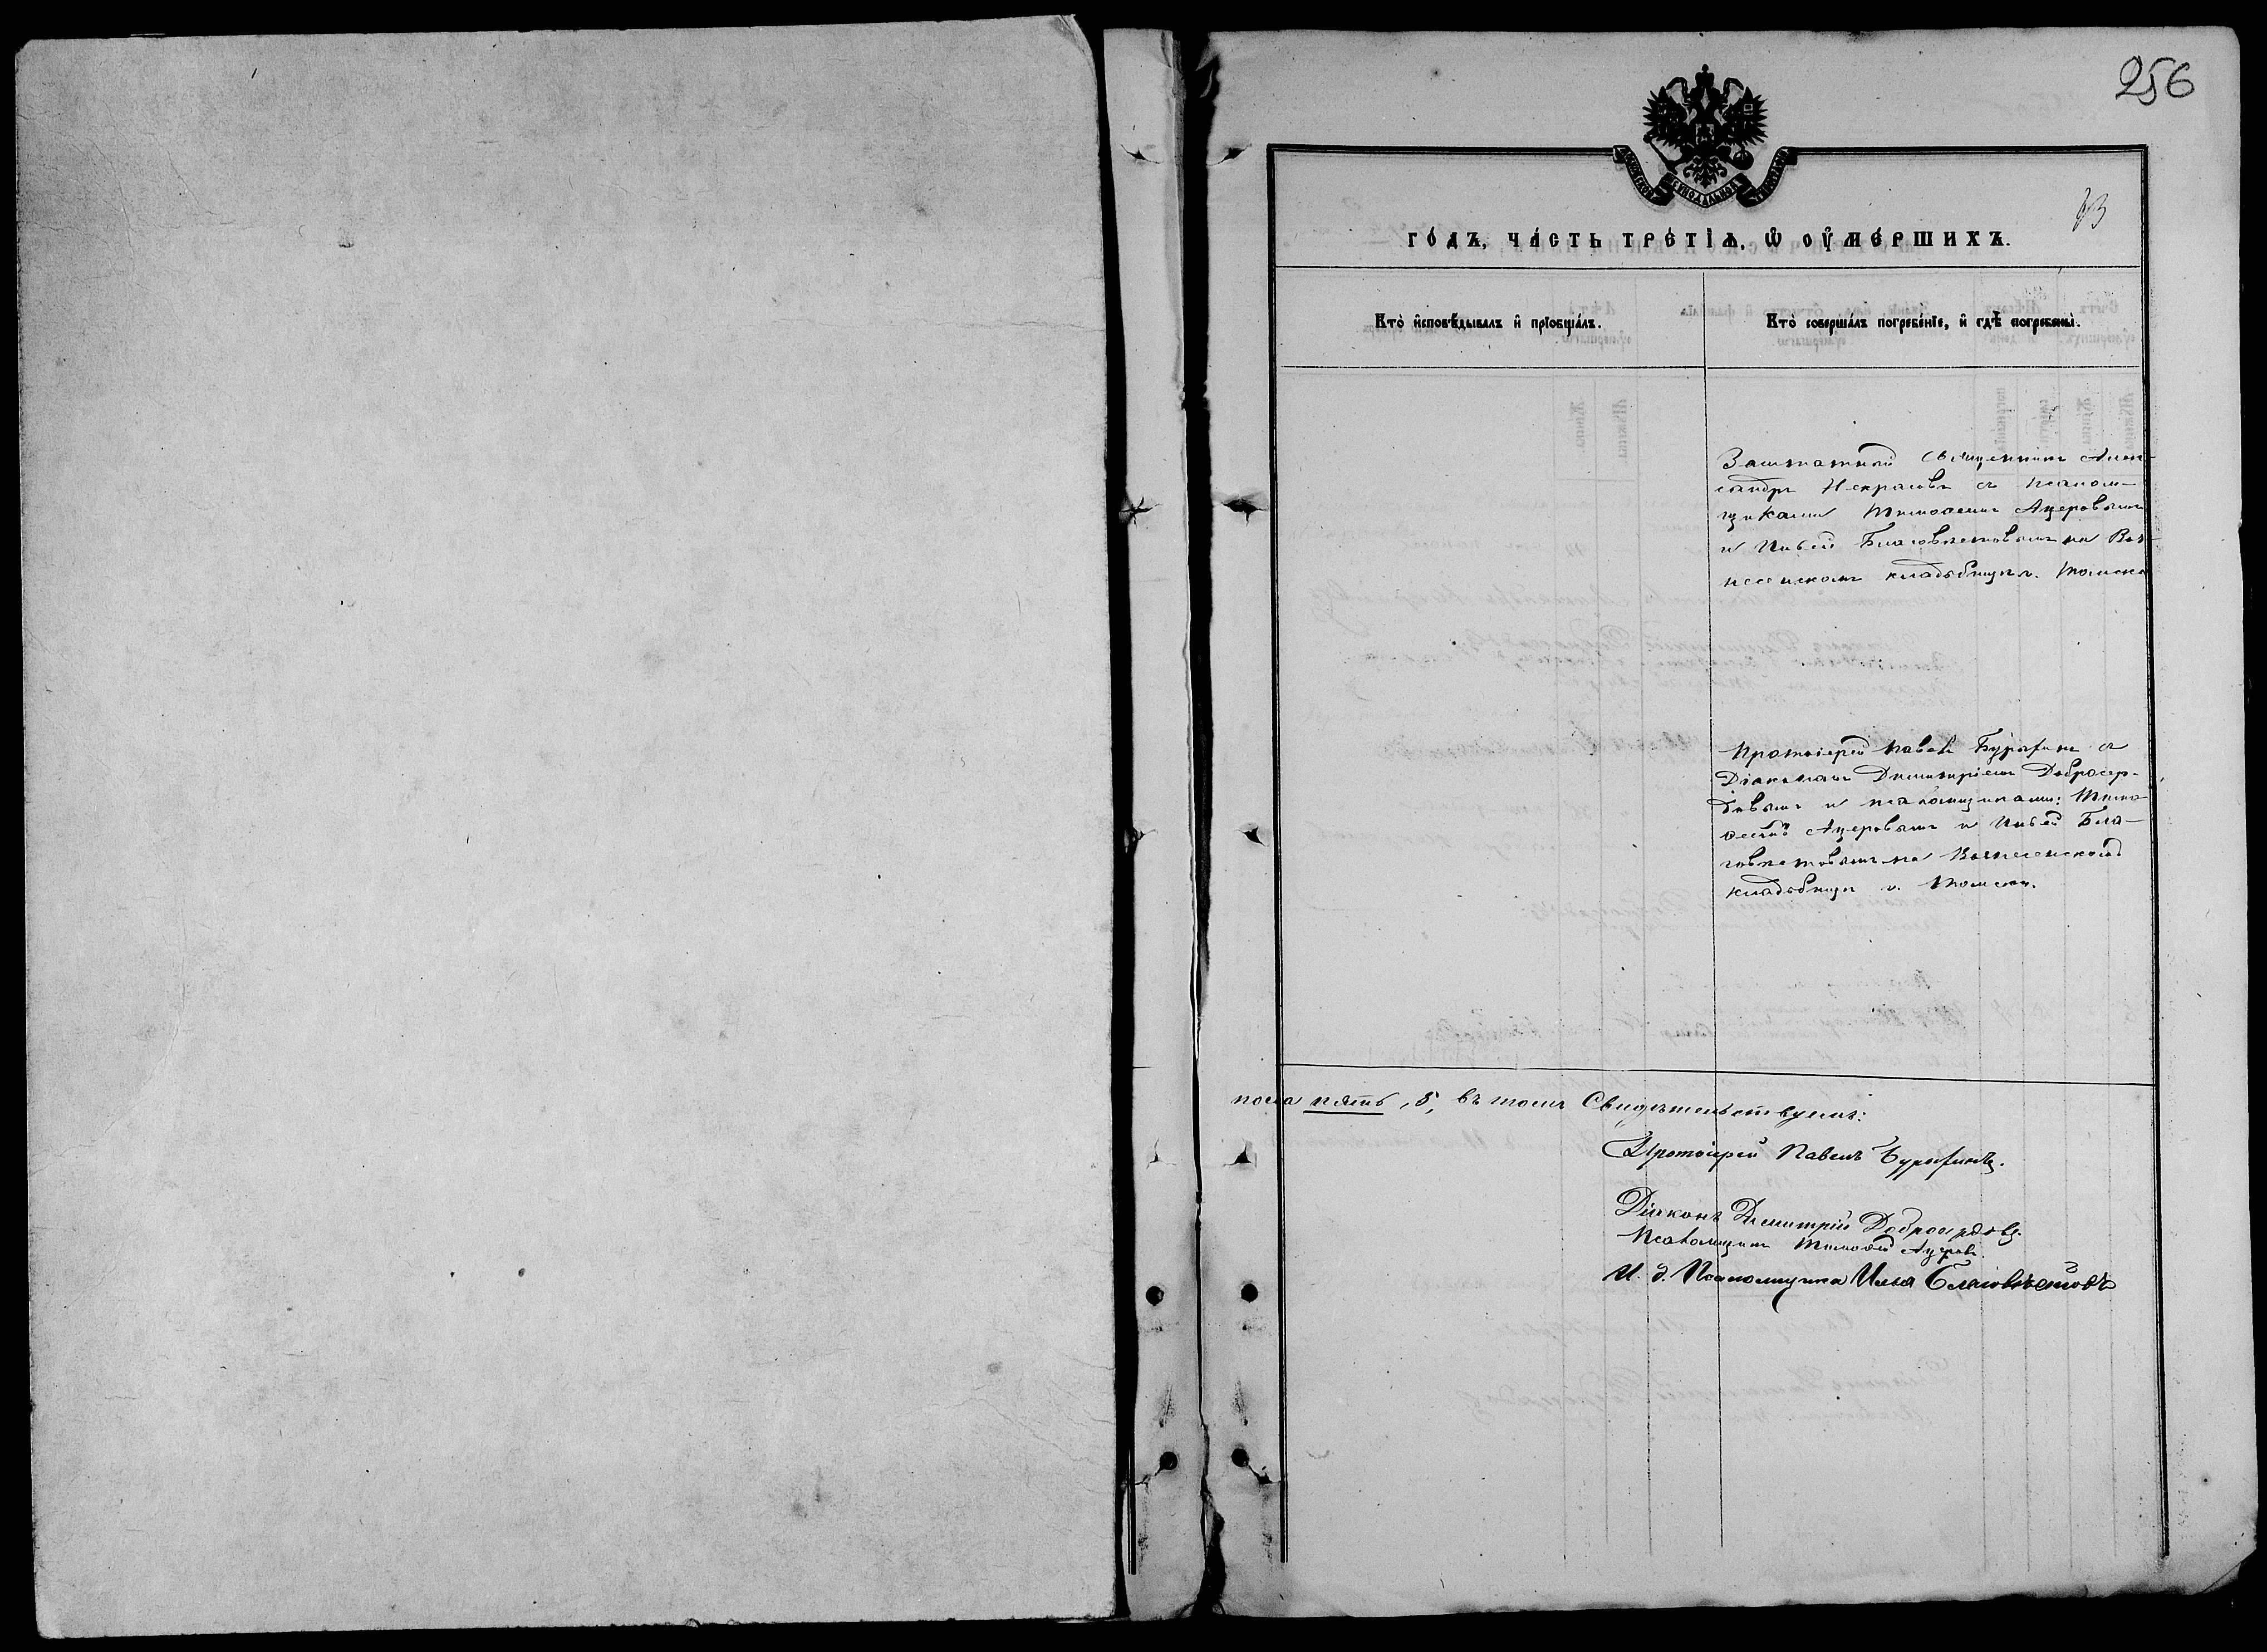 256
МОСКОВСКОЙ СѴНОДАЛЬНОЙ ТИПОГРАФІИ
93
го́дъ, ча́сть тре́тїѧ, ѡ҆ ᲂу҆ме́ршихъ.
Кто̀ и҆сповѣ́дывалъ и҆ прїобща́лъ.
Кто̀ соверша́лъ погребе́нїе, и҆ гдѣ̀ погребены̀.
Заштатный Священникъ Алек-
сандръ Некрасовъ съ псалом-
щиками Тимоѳеемъ Ацеровымъ
и Ильей Благовѣстовымъ на Воз-
несенскомъ кладбищѣ г. Томска
Протоіерей Павелъ Бурыхинъ съ
Діакономъ Димитріемъ Добросер-
довымъ и псаломщиками: Тимо-
ѳеемъ Ацеровымъ и Ильей Бла-
говѣстовымъ на Вознесенскомъ
кладбищѣ г. Томска.
пола пять, 5, въ томъ Свидѣтельствуемъ:
Протоіерей Павелъ Бурыхинъ.
Діаконъ Димитрій Добросердовъ.
Псаломщикъ Тимоѳей Ацеровъ.
И. д. Псаломщика Илья Благовѣстовъ